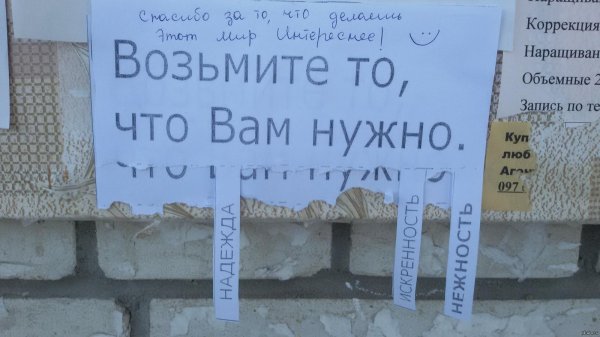 Спасибо за то, что делаешь
Этот мир Интереснее!
Возьмите то,
что Вам нужно.
что Вам нужно
НАДЕЖДА
ИСКРЕННОСТЬ
НЕЖНОСТЬ
Коррекция
Наращиван
Объемные 2
Запись по те
Куп
люб
Аген
097